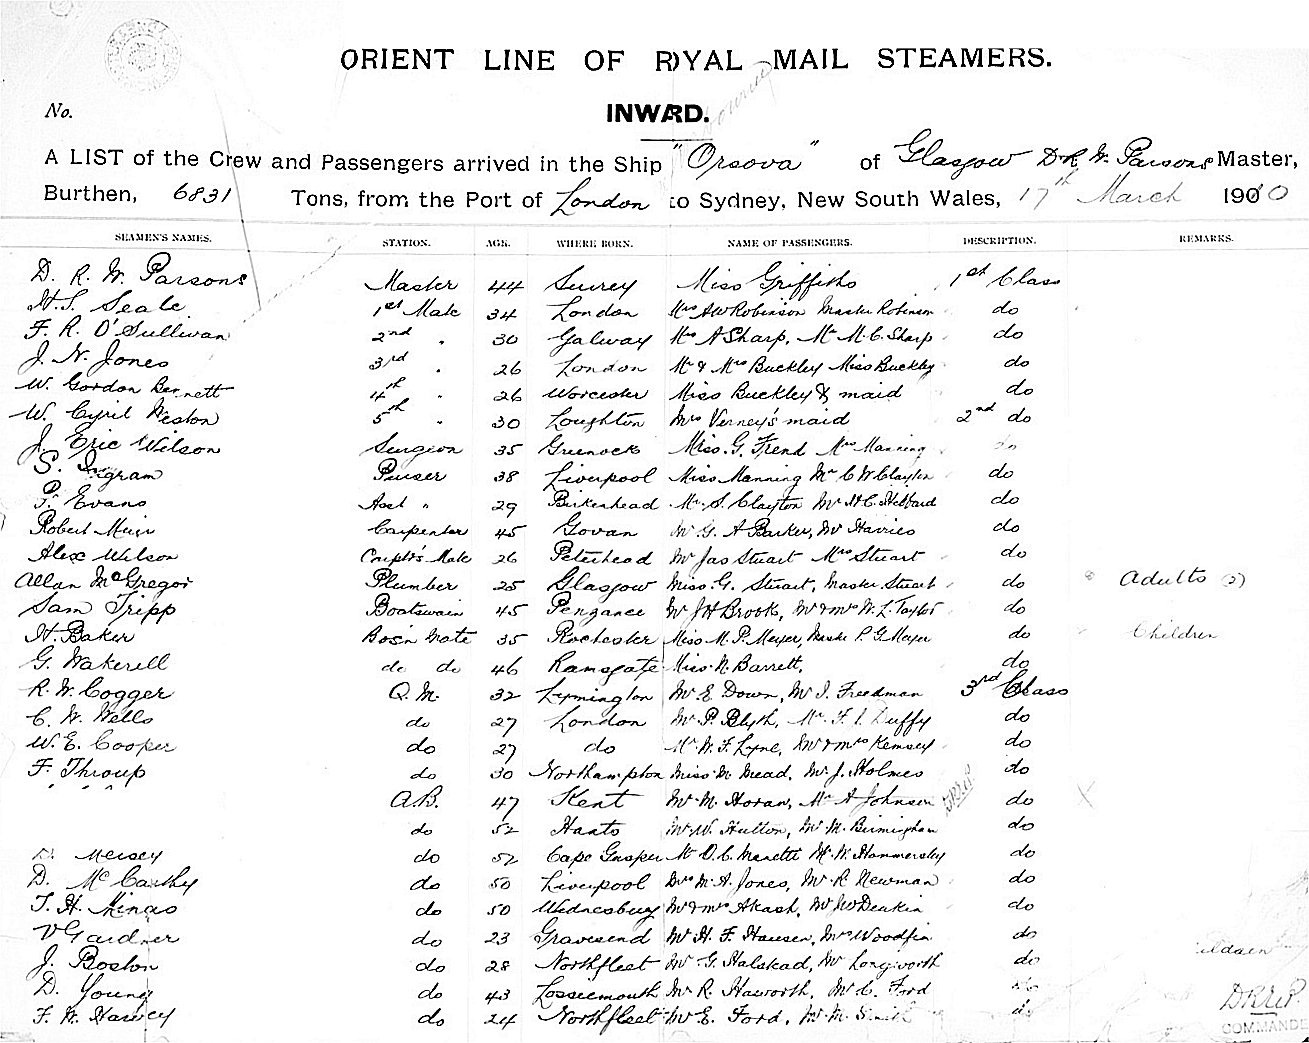 ORIENT LINE OF ROYAL MAIL STEAMERS.
No.
INWARD.
A LIST of the Crew and Passengers arrived in the Ship "Orsova" of Glasgow D.R.W. Parsons Master,
Burthen, 6831 Tons, from the Port of London to Sydney, New South Wales, 17th March 1900
SEAMEN'S NAMES. STATION. AGE. WHERE BORN. NAME OF PASSENGERS. DESCRIPTION. REMARKS.
D. R. W. Parsons Master 44 Surrey Miss Griffiths 1st Class
H.S. Seale 1st Mate 34 London Mrs AW Robinson Master Robinson do
F. R. O'Sullivan 2nd " 30 Galway Mrs A Sharp, Mr M.C. Sharp do
J. N. Jones 3rd " 26 London Mr & Mrs Buckley Miss Buckley do
W. Gordon Bennett 4th " 26 Worcester Miss Buckley & maid do
W. Cyril Weston 5th " 30 Loughton Mrs Verney's maid 2nd do
J. Eric Wilson Surgeon 35 Greenock Miss. G. Frend Mrs Manning do
S. Ingram Purser 38 Liverpool Miss Manning Mr C W Clayton do
P. Evans Asst " 29 Birkenhead Mr. S. Clayton Mr H.C. Hebbard do
Robert Muir Carpenter 45 Govan Mr G. A Barker, Mr Harries do
Alex Wilson Carptr's Mate 26 Peterhead Mr Jas Stuart Mrs Stuart do
Allan McGregor Plumber 25 Glasgow Miss. G. Stuart, Master Stuart do Adults
Sam Tripp Boatswain 45 Penzance Mr J H Brook, Mr & Mrs W. L. Taylor do
H. Baker Bos'n Mate 35 Rochester Miss M. P. Meyer, Master P. G. Meyer do Children
G. Wakerell do do 46 Ramsgate Miss N. Barrett. do
R. W. Cogger Q.M. 32 Lymington Mr. E. Down, Mr J. Freedman 3rd Class
C. W. Wells do 27 London Mr. P. Blyth, Mr. F. J. Duffy do
W. E. Cooper do 27 do Mr. W. F. Lyne, Mr & Mrs Kemsey do
F. Throup do 30 Northampton Miss M. Mead, Mr. J. Holmes do
A.B. 47 Kent Mr. M. Horan, Mr A Johnson do
do 52 Hants Mr. W. Hutton, Mr M. Birmingham do
D. Mersey do 52 Cape Gasper Mr O. C. Manette Mr. W. Hammersley do
D. McCarthy do 50 Liverpool Mrs M. A. Jones, Mr. R Newman do
T. H. Mings do 50 Wednesbury Mr & Mrs Akash, Mr JW Deakin do
V Gardner do 23 Gravesend Mr H. F. Hansen, Mrs Woodfin do
J. Boston do 28 Northfleet Mr. G. Halstead, Mr Longworth do
D. Young do 43 Lossiemouth Mr R. Haworth, Mr C. Ford do
F. W. Harvey do 24 Northfleet Mr E. Ford, Mr M. Smith do
COMMANDE